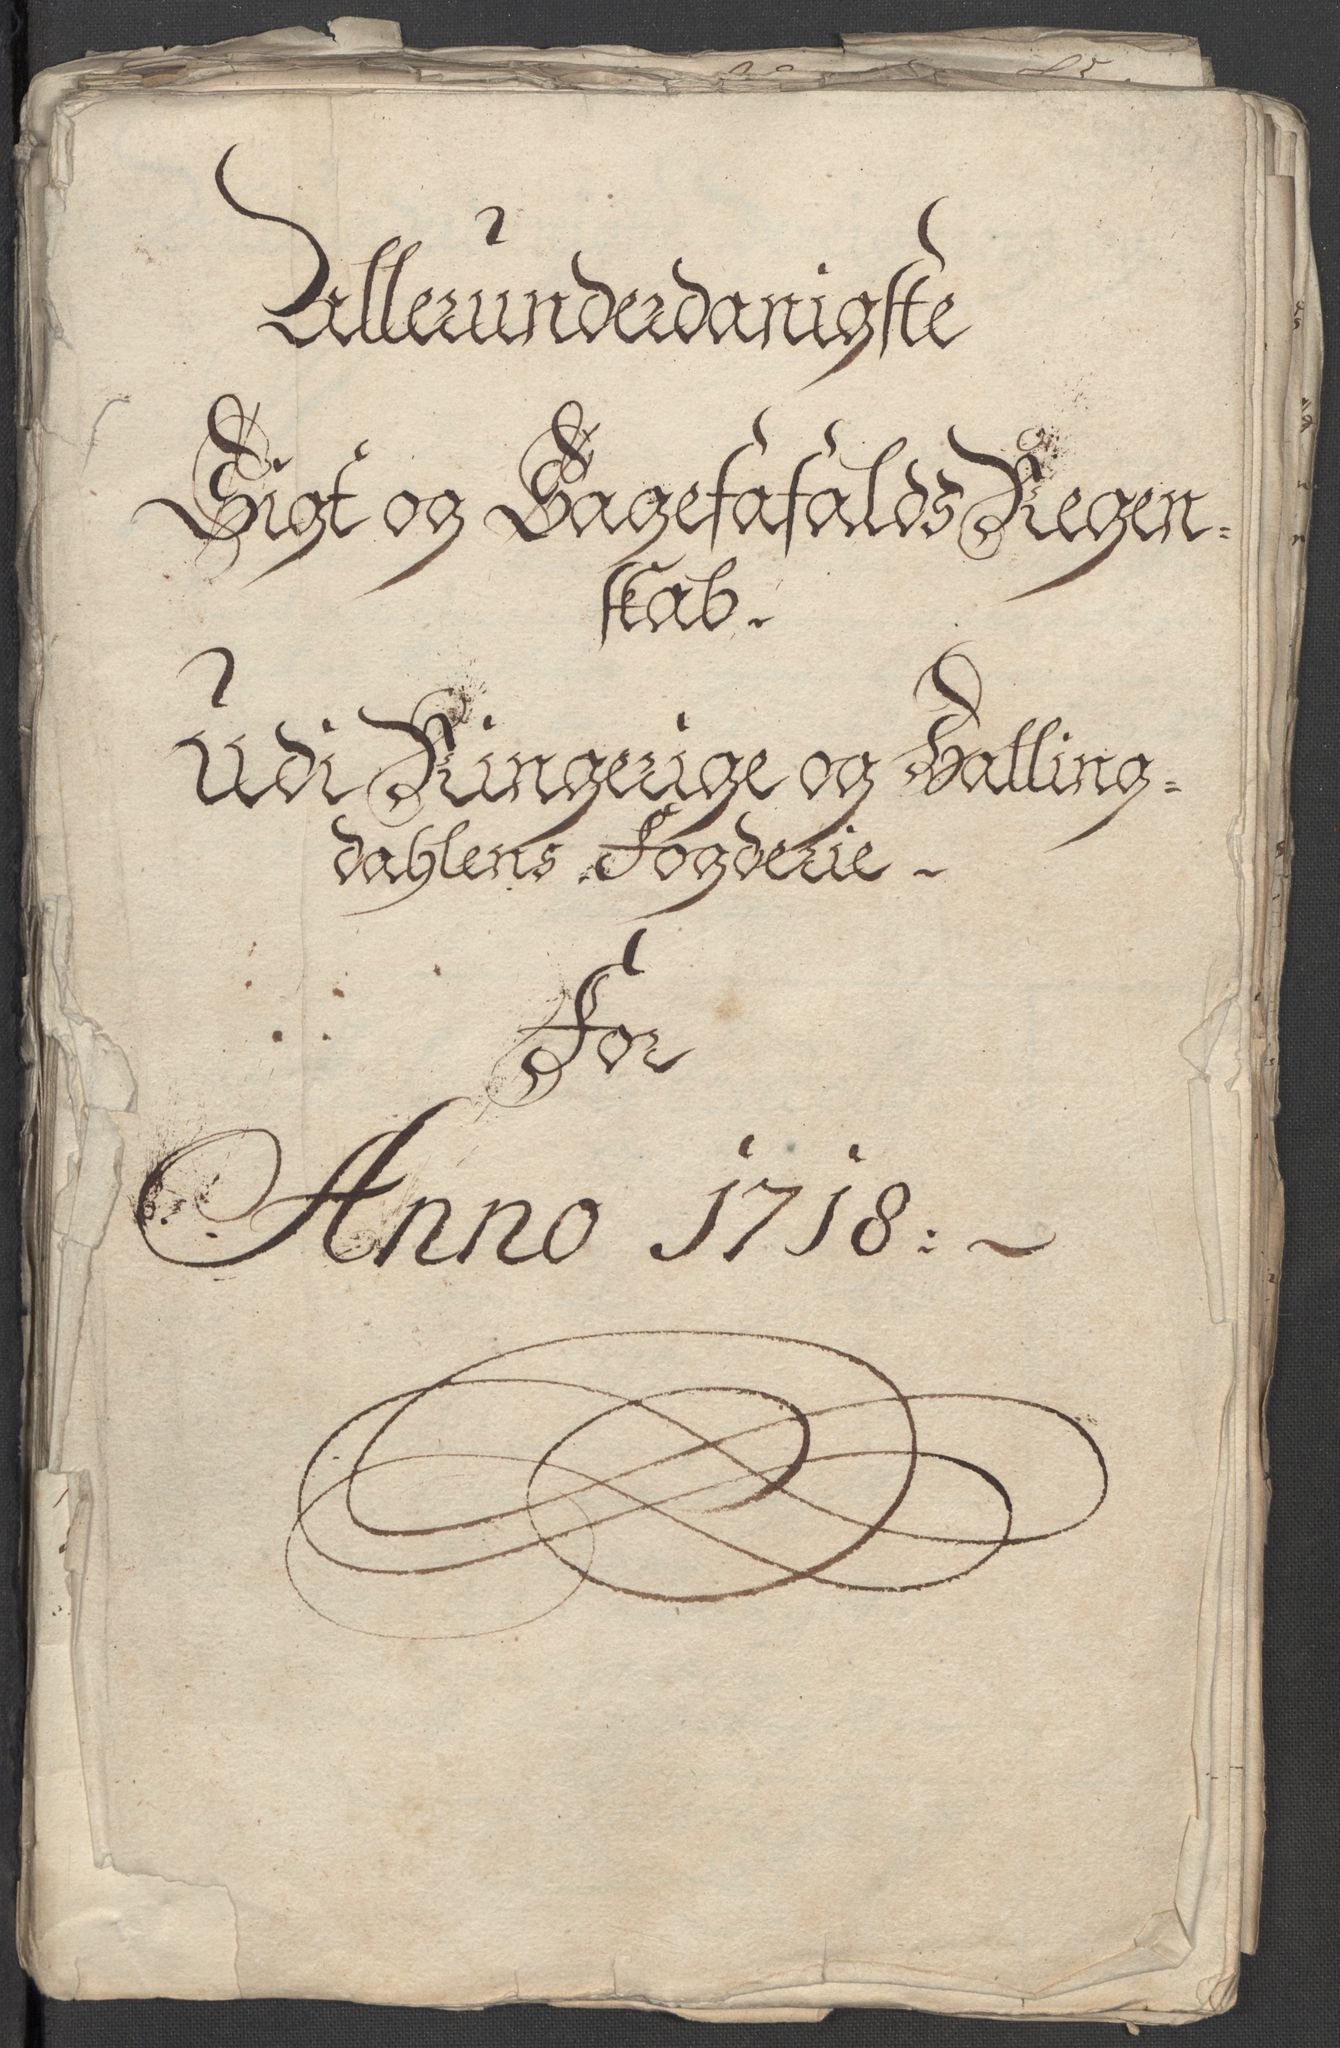 Allerunderdanigste
Sigt og Sagefafalds Regen=
skab.
Udi Ringerige og Halling=
dahlens Fogderie
For
Anno 1718: